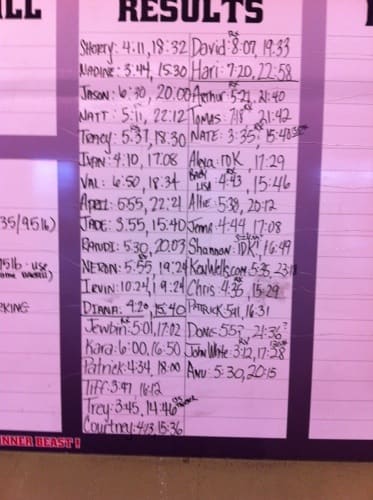 ALL
RESULTS
Sherry: 4:11, 18:32
Nadine: 3:44, 15:30
Jason: 6:30, 20:00
Natt: 5:11, 22:12
Toney: 5:37, 18:30
Ivan: 4:10, 17:08
Val: 6:50, 18:34
April: 6:55, 22:21
Jade: 3:55, 15:40
Randi: 5:30, 20:03
Neron: 5:55, 19:24
Irvin: 10:24, 19:24
Diana: 4:20, 15:40
Rx
Jewbin: 5:01, 17:02
Kara: 6:00, 16:50
Patrick: 4:34, 18:00
Tiff: 3:47, 16:12
Trey: 3:45, 14:46
Courtney: 4:13, 15:36
Rx
David: 8:07, 19:33
Hari: 7:20, 22:58
Rx
Arthur: 5:21, 21:40
Tomas: 7:18, 21:42
Nate: 3:35, 15:40
Alexa: IDK, 17:29
Baby
Lisa: 4:43, 15:46
Allie: 5:38, 20:12
Jema: 4:44, 17:08
Shannon: IDK!, 16:49
KenWells.com: 5:35
Chris: 4:35, 15:29
Patrick: 5:41, 16:31
Done: 5:57, 21:36?
John White: 3:12, 17:28
Anu: 5:30, 20:15
35/95lb)
5lb - use
KING
INNER BEAST!